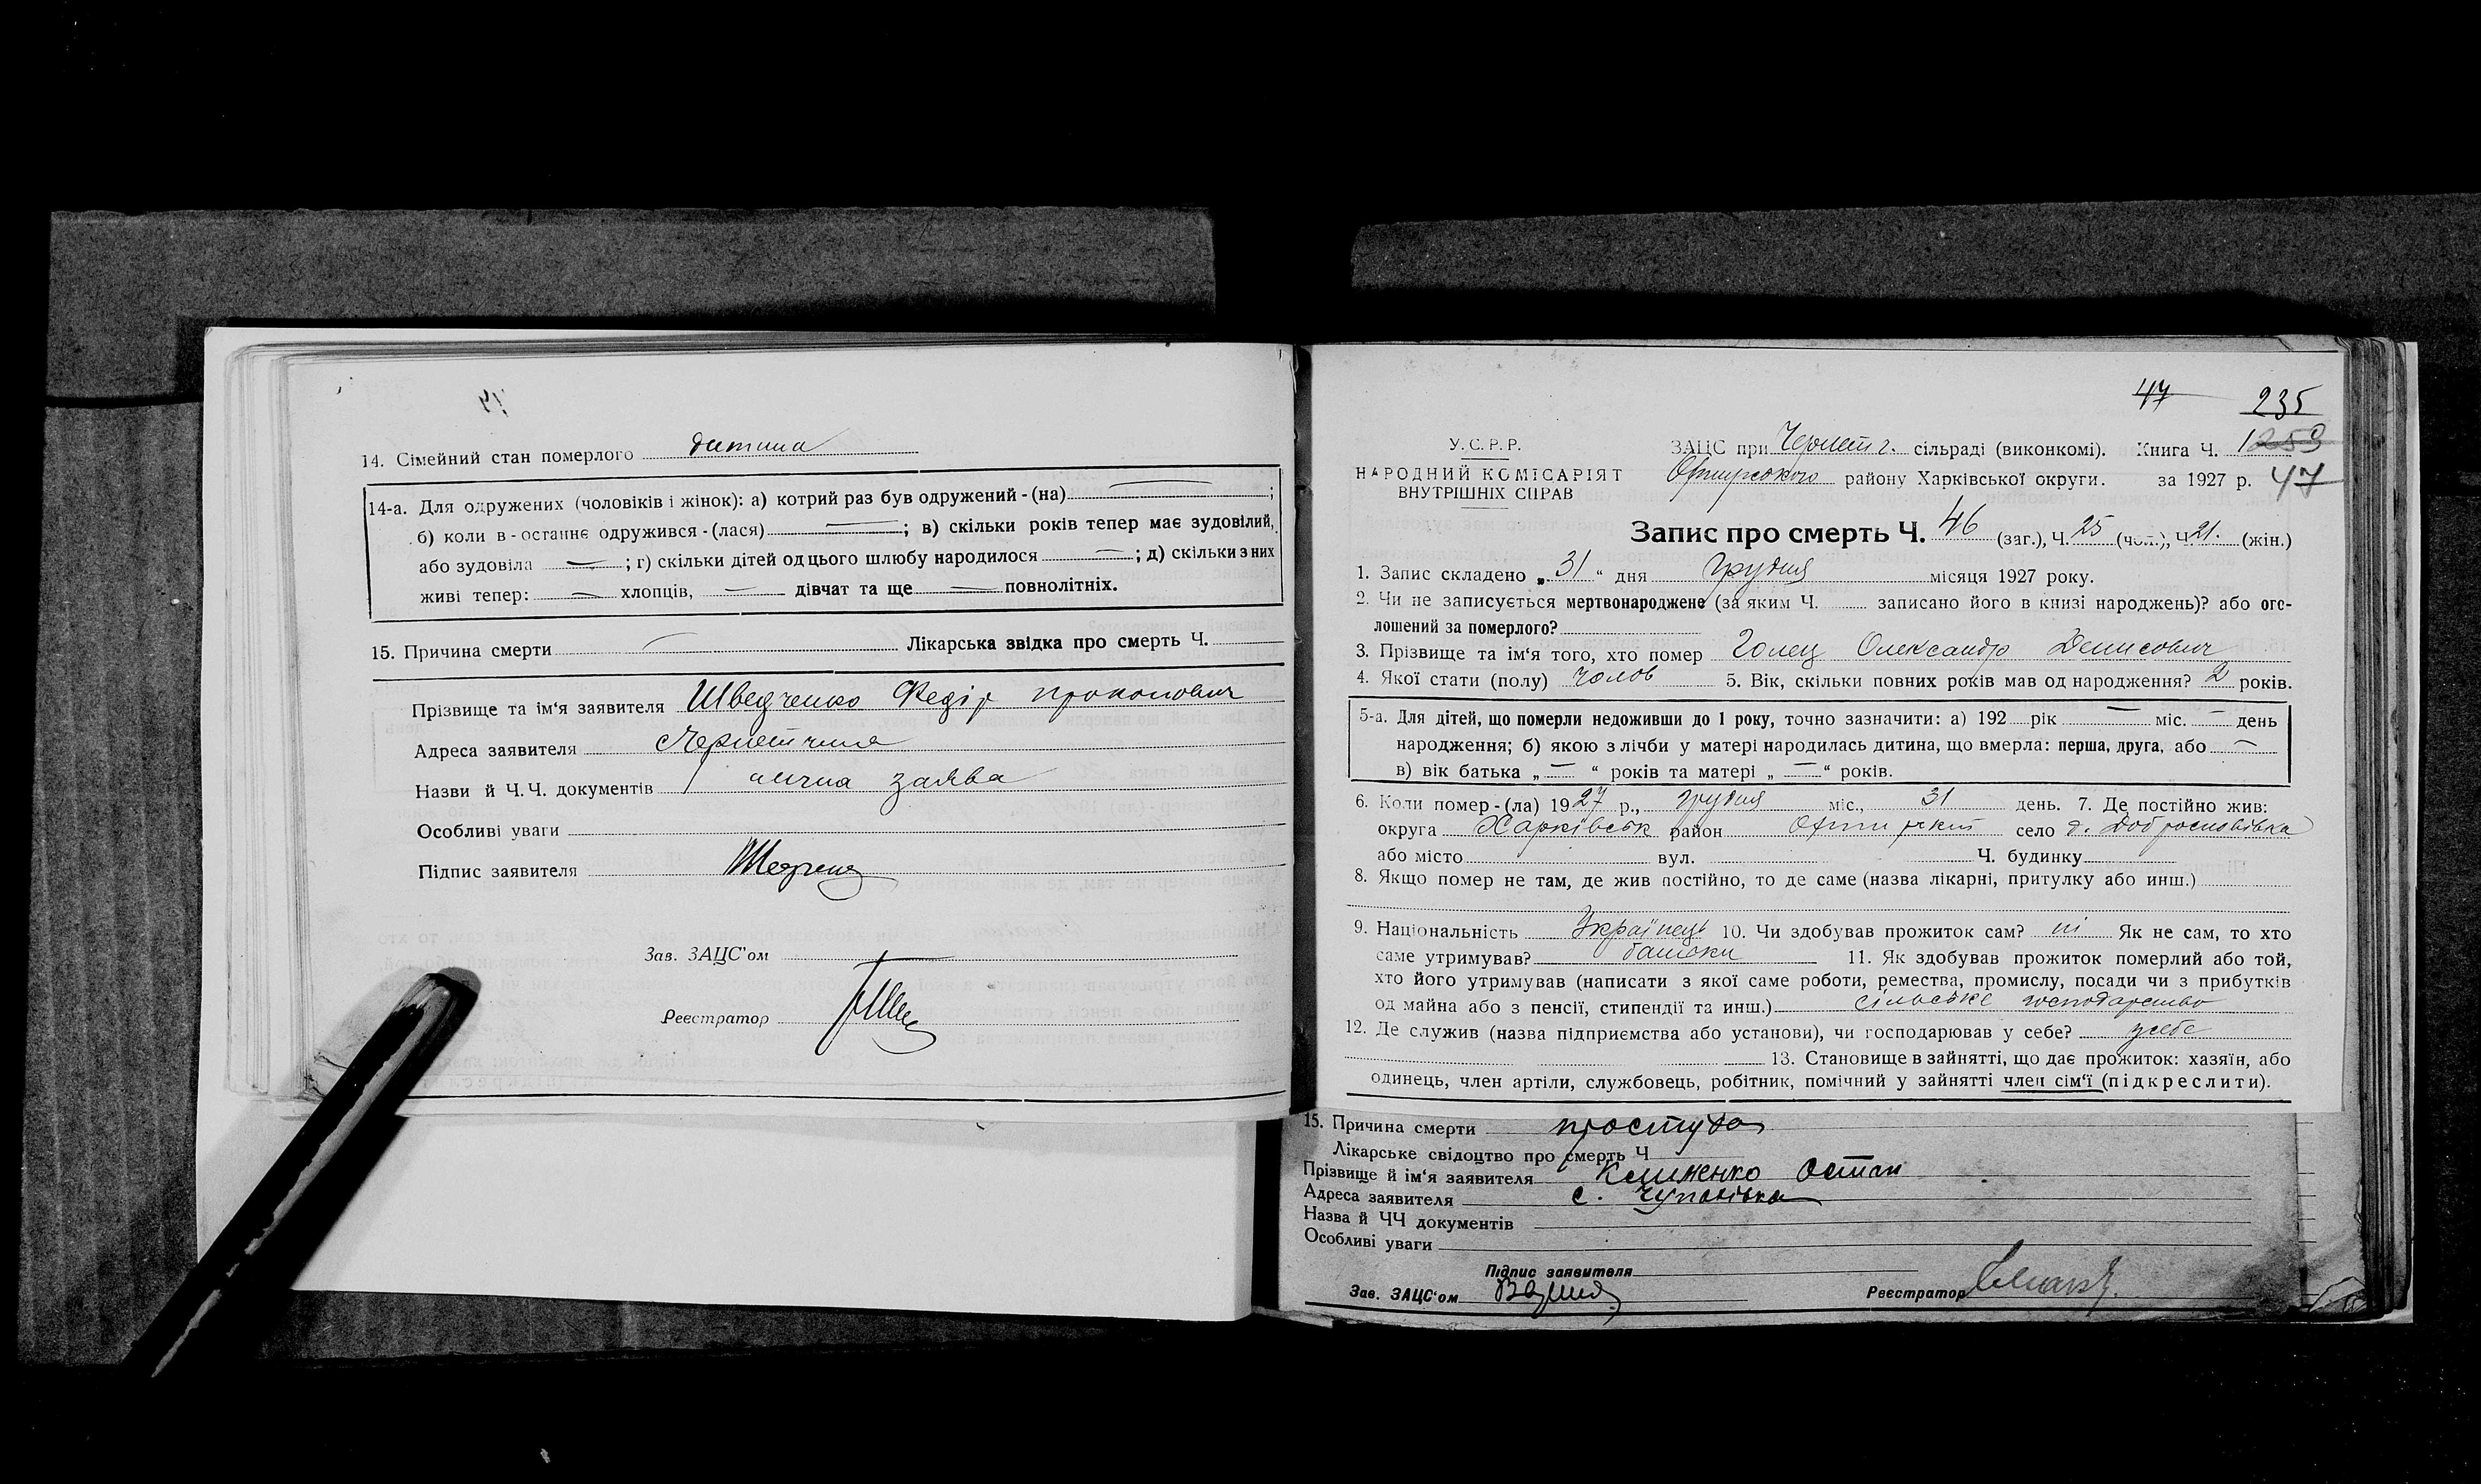 14. Сімейний стан померлого дитина
14-а. Для одружених (чоловіків і жінок): а) котрий раз був одружений - (на) ;
б) коли в-останнє одружився - (лася) ; в) скільки років тепер має зудовілий,
або зудовіла ; г) скільки дітей од цього шлюбу народилося ; д) скільки з них
живі тепер: хлопців, дівчат та ще повнолітніх.
15. Причина смерти Лікарська звідка про смерть Ч.
Прізвище та ім'я заявителя Шведченко Федір Прокопович
Адреса заявителя
Назви й Ч.Ч. документів лична заява
Особливі уваги
Підпис заявителя
Зав. ЗАЦС'ом
Реєстратор
47 235
У.С.Р.Р. ЗАЦС при сільраді (виконкомі). Книга Ч. 1253
НАРОДНИЙ КОМІСАРІЯТ району Харківської округи. за 1927 р. 47
ВНУТРІШНІХ СПРАВ
Запис про смерть Ч. 46 (заг.), Ч. 25 (чол.), Ч. 21. (жін.)
1. Запис складено „ 31 “ дня грудня місяця 1927 року.
2. Чи не записується мертвонароджене (за яким Ч. записано його в книзі народжень)? або ого-
лошений за померлого?
3. Прізвище та ім'я того, хто помер Голец Олександр Денисович
4. Якої стати (полу) чолов 5. Вік, скільки повних років мав од народження? 2 років.
5-а. Для дітей, що померли недоживши до 1 року, точно зазначити: а) 192 рік — міс. — день
народження; б) якою з лічби у матері народилась дитина, що вмерла: перша, друга, або —
в) вік батька „ — “ років та матері „ — “ років.
6. Коли помер - (ла) 1927 р., грудня міс., 31 день. 7. Де постійно жив:
округа Харківськ район село
або місто вул. Ч. будинку
8. Якщо помер не там, де жив постійно, то де саме (назва лікарні, притулку або инш.)
9. Національність Українець 10. Чи здобував прожиток сам? ні Як не сам, то хто
саме утримував? батьки 11. Як здобував прожиток померлий або той,
хто його утримував (написати з якої саме роботи, ремества, промислу, посади чи з прибутків
од майна або з пенсії, стипендії та инш.) сільське господарство
12. Де служив (назва підприємства або установи), чи господарював у себе? у себе
13. Становище в зайнятті, що дає прожиток: хазяїн, або
одинець, член артіли, службовець, робітник, помічний у зайнятті член сім'ї (підкреслити).
15. Причина смерти простуда
Лікарське свідоцтво про смерть Ч
Прізвище й ім'я заявителя Клименко Остап
Адреса заявителя с. Чупахівка
Назва й ЧЧ документів
Особливі уваги
Підпис заявителя
Зав. ЗАЦС'ом Реєстратор